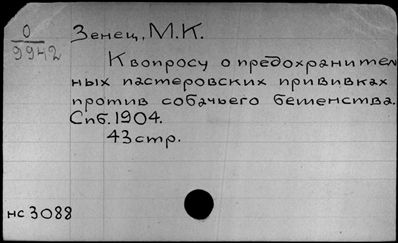 0
9942
Зенец, М.К.
К вопросу о предохранител
ных пастеровских прививках
против собачьего бешенства.
Спб. 1904.
43 стр.
нс 3088